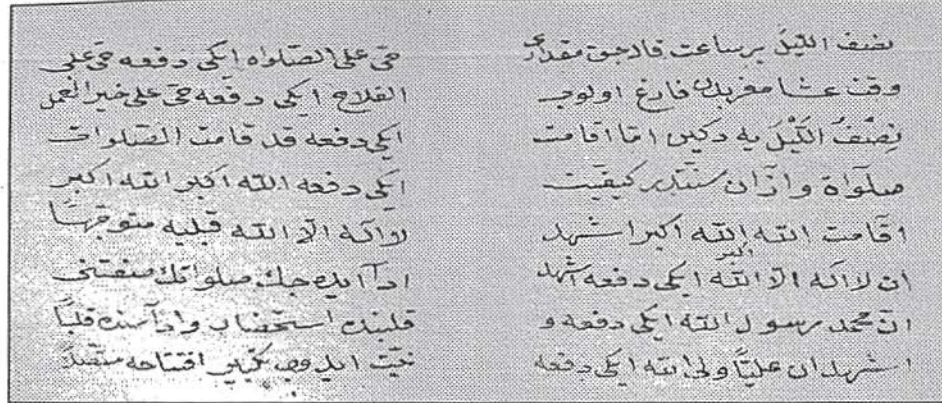 نصف الليل برساعت قلادجق مقداری
وقت عشا مغربدن فارغ اولوب
نِصْفُ اللَّيْلَ يه دكين اما اقامت
صلواة واذان سنتدر كيفيت
اقامت الله الله اكبر اشهد
اكبر
ان لا اله الا الله ايكی دفعه اشهد
انّ محمد رسول الله ايكی دفعه و
اشهد ان علیّاً ولی الله ايكی دفعه
حی علی الصّلواه ايكی دفعه حی علی
الفلاح ايكی دفعه حی علی خیر العمل
ايكی دفعه قد قامت الصّلوات
ايكی دفعه الله اكبر الله اكبر
لا اله الا الله قبلیه متوجّهاً
ادآ ایده جك صلواتك صفتنی
قلبنده استحضار وادآسنه قلباً
نیّت ایدوب تكبیر افتتاحه